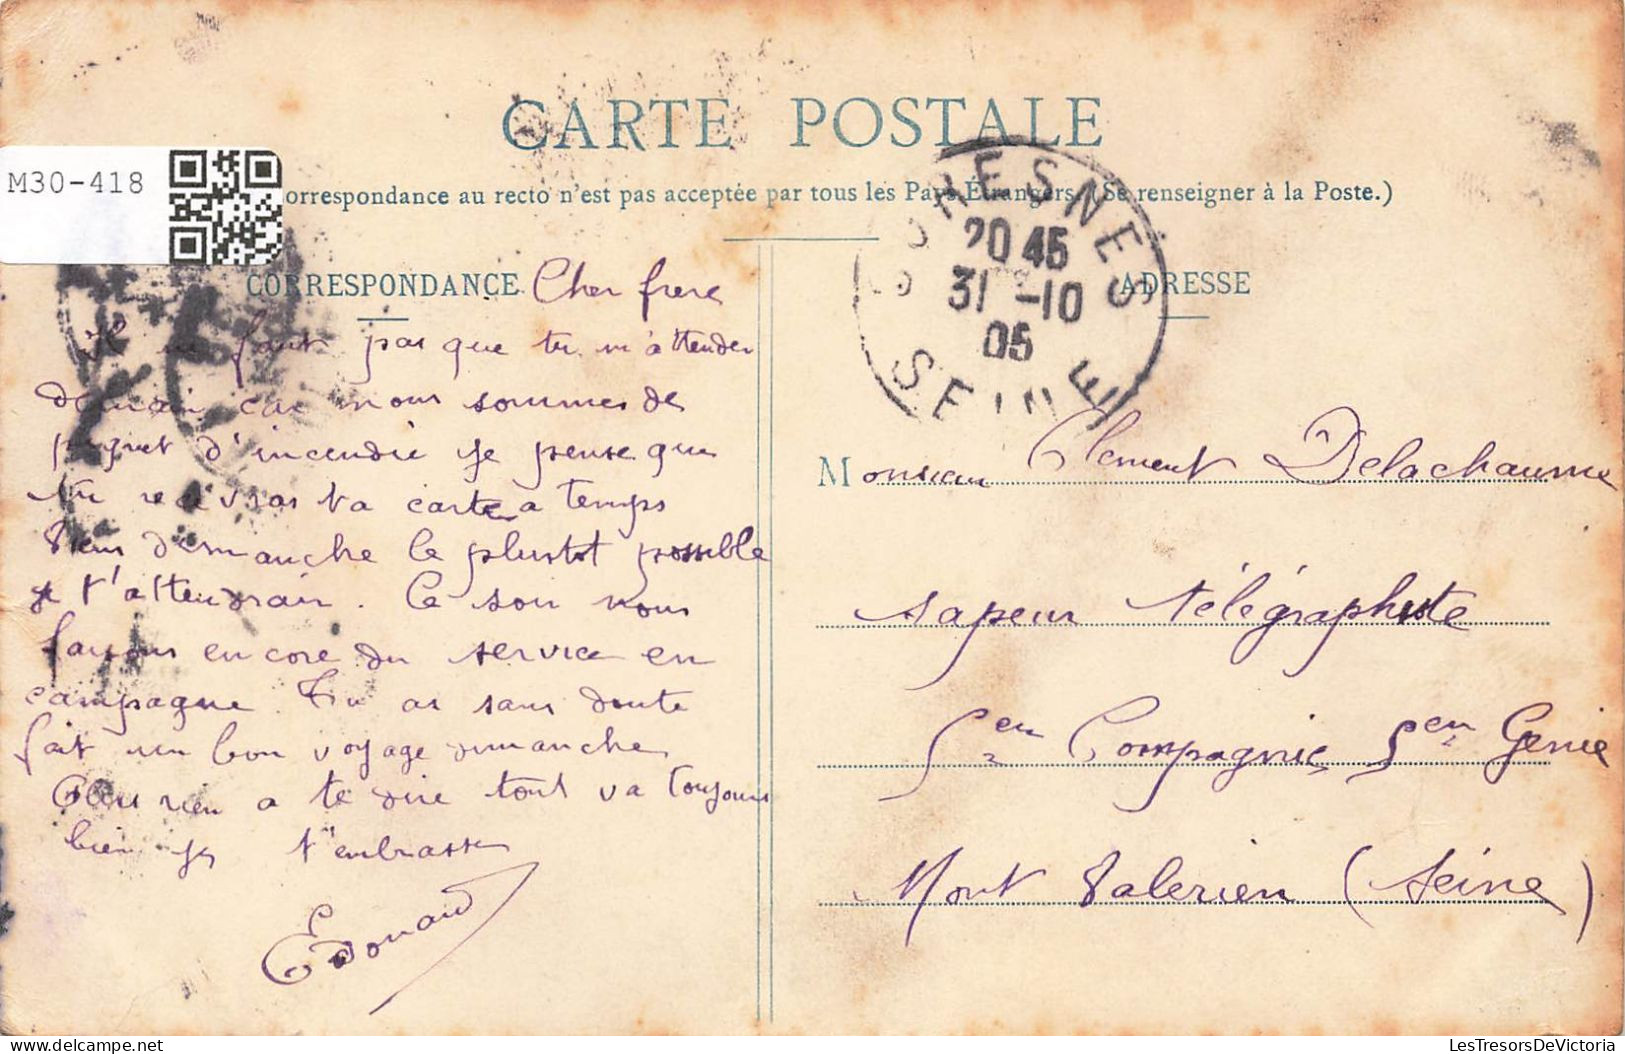 CARTE POSTALE
M30-418
orrespondance au recto n'est pas acceptée par tous les Pays Étrangers. (Se renseigner à la Poste.)
SURESNES
20 45
31 -10
05
SEINE
CORRESPONDANCE
ADRESSE
Cher frere
Il ne faut pas que tu m'attender
demain car nous sommes de
piquet d'incendie je pense que
tu recevras ta carte a temps
Viens dimanche le plustot possible
je t'attendrair. Ce soir nous
faisons encore du service en
campagne. Tu as sans doute
fait un bon voyage dimanche
Plus rien a te dire tout va toujours
bien je t'embrasse
Edouard
Monsieur Clement Delachaume
sapeur télégraphiste
5en Compagnie 5en Genie
Mont Valerien (Seine)
LesTresorsDeVictoria
delcampe.net